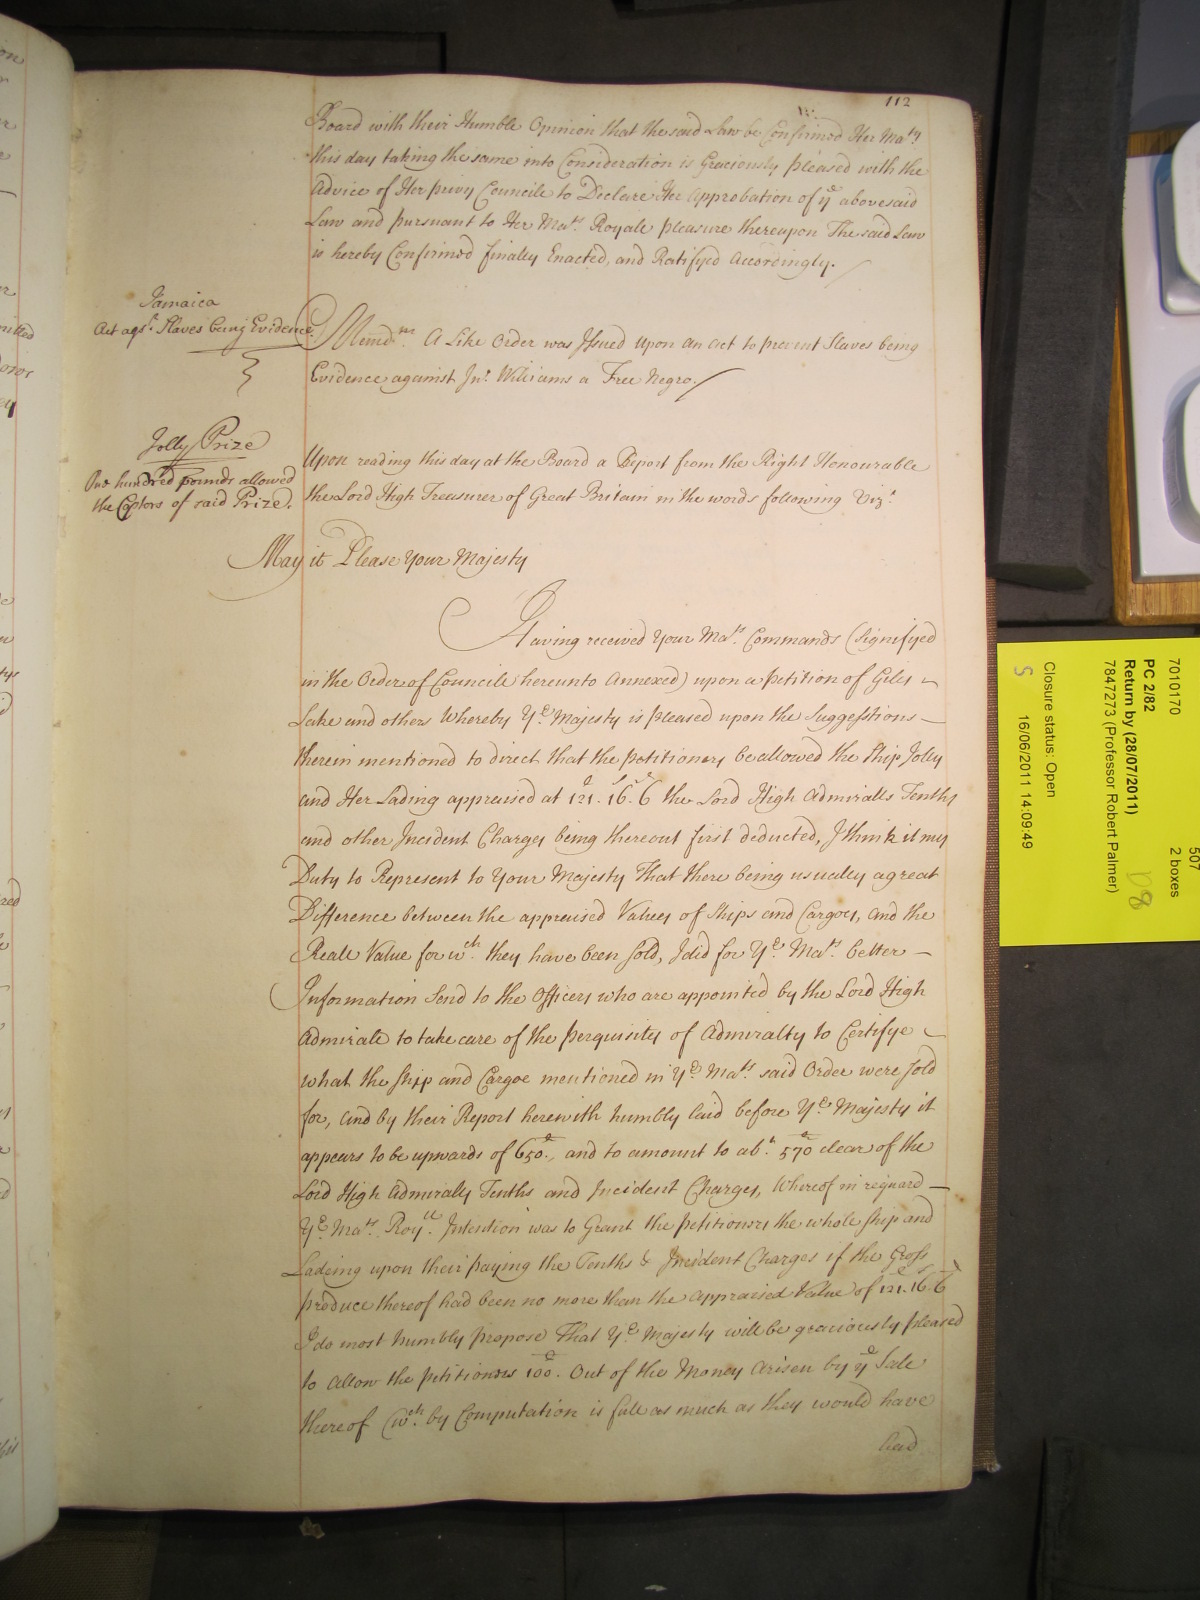 112
Board with their Humble Opinion that the said Law be Confirmed Her Maty
this day taking the same into Consideration is Graciously pleased with the
Advice of Her privy Councile to Declare Her Approbation of ye abovesaid
Law and pursuant to Her Mats. Royale pleasure thereupon The said Law
is hereby Confirmed finally Enacted, and Ratifyed Accordingly.
Jamaica
Act agst. Slaves being Evidence
Memdm. A Like Order was Issued Upon an Act to prevent Slaves being
Evidence against Jno. Williams a Free Negro.
Jolly Prize
One hundred pounds allowed
the Captors of said Prize.
Upon reading this day at the Board a Report from the Right Honourable
the Lord High Treasurer of Great Britain in the words following Vizt.
May it Please Your Majesty
Having received Your Mats. Commands (signifyed
in the Order of Councile hereunto Annexed) upon a petition of Giles
Lake and others Whereby Yr. Majesty is pleased upon the Suggestions
therein mentioned to direct that the petitioners be allowed the ship Jolly
and Her Lading appraised at 121. 16. 6 the Lord High Admiralls Tenths
and other Incident Charges being thereout first deducted, I think it my
Duty to Represent to Your Majesty That there being usualey a great
Difference between the appraised Values of Ships and Cargoes, and the
Reale Value for wch. they have been sold, I did for Yr. Mats. better
Information Send to the Officers who are appointed by the Lord High
Admirale to take care of the perquisits of Admiralty to Certifye
what the ship and Cargoe mentioned in Yr. Mats. said Order were sold
for, and by their Report herewith humbly laid before Yr. Majesty it
appears to be upwards of 650., and to amount to abt. 570 clear of the
Lord High Admiralls Tenths and Incident Charges, Whereof in reguard
Yr. Mats. Royll. Intention was to Grant the petitioners the whole ship and
Ladeing upon their paying the Tenths & Incident Charges if the Gross
produce thereof had been no more than the appraised Value of 121. 16. 6
I do most humbly propose That Yr. Majesty will be graciously pleased
to allow the petitioners 100. Out of the Money Arisen by ye Sale
thereof (wch. by Computation is full as much as they would have
had
7010170
507
2 boxes
PC 2/82
Return by (28/07/2011)
7847273 (Professor Robert Palmer)
D8
Closure status: Open
S
16/06/2011 14:09:49